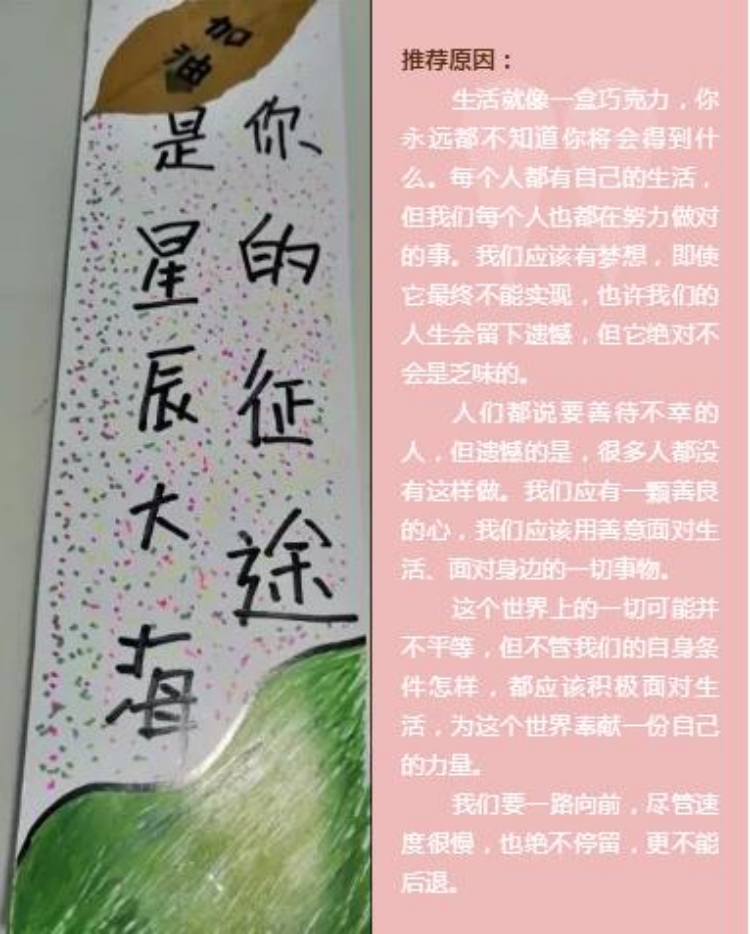 加油
你的征途
是星辰大海
推荐原因：
生活就像一盒巧克力，你
永远都不知道你将会得到什
么。每个人都有自己的生活，
但我们每个人也都在努力做对
的事。我们应该有梦想，即使
它最终不能实现，也许我们的
人生会留下遗憾，但它绝对不
会是乏味的。
人们都说要善待不幸的
人，但遗憾的是，很多人都没
有这样做。我们应有一颗善良
的心，我们应该用善意面对生
活、面对身边的一切事物。
这个世界上的一切可能并
不平等，但不管我们的自身条
件怎样，都应该积极面对生
活，为这个世界奉献一份自己
的力量。
我们要一路向前，尽管速
度很慢，也绝不停留，更不能
后退。